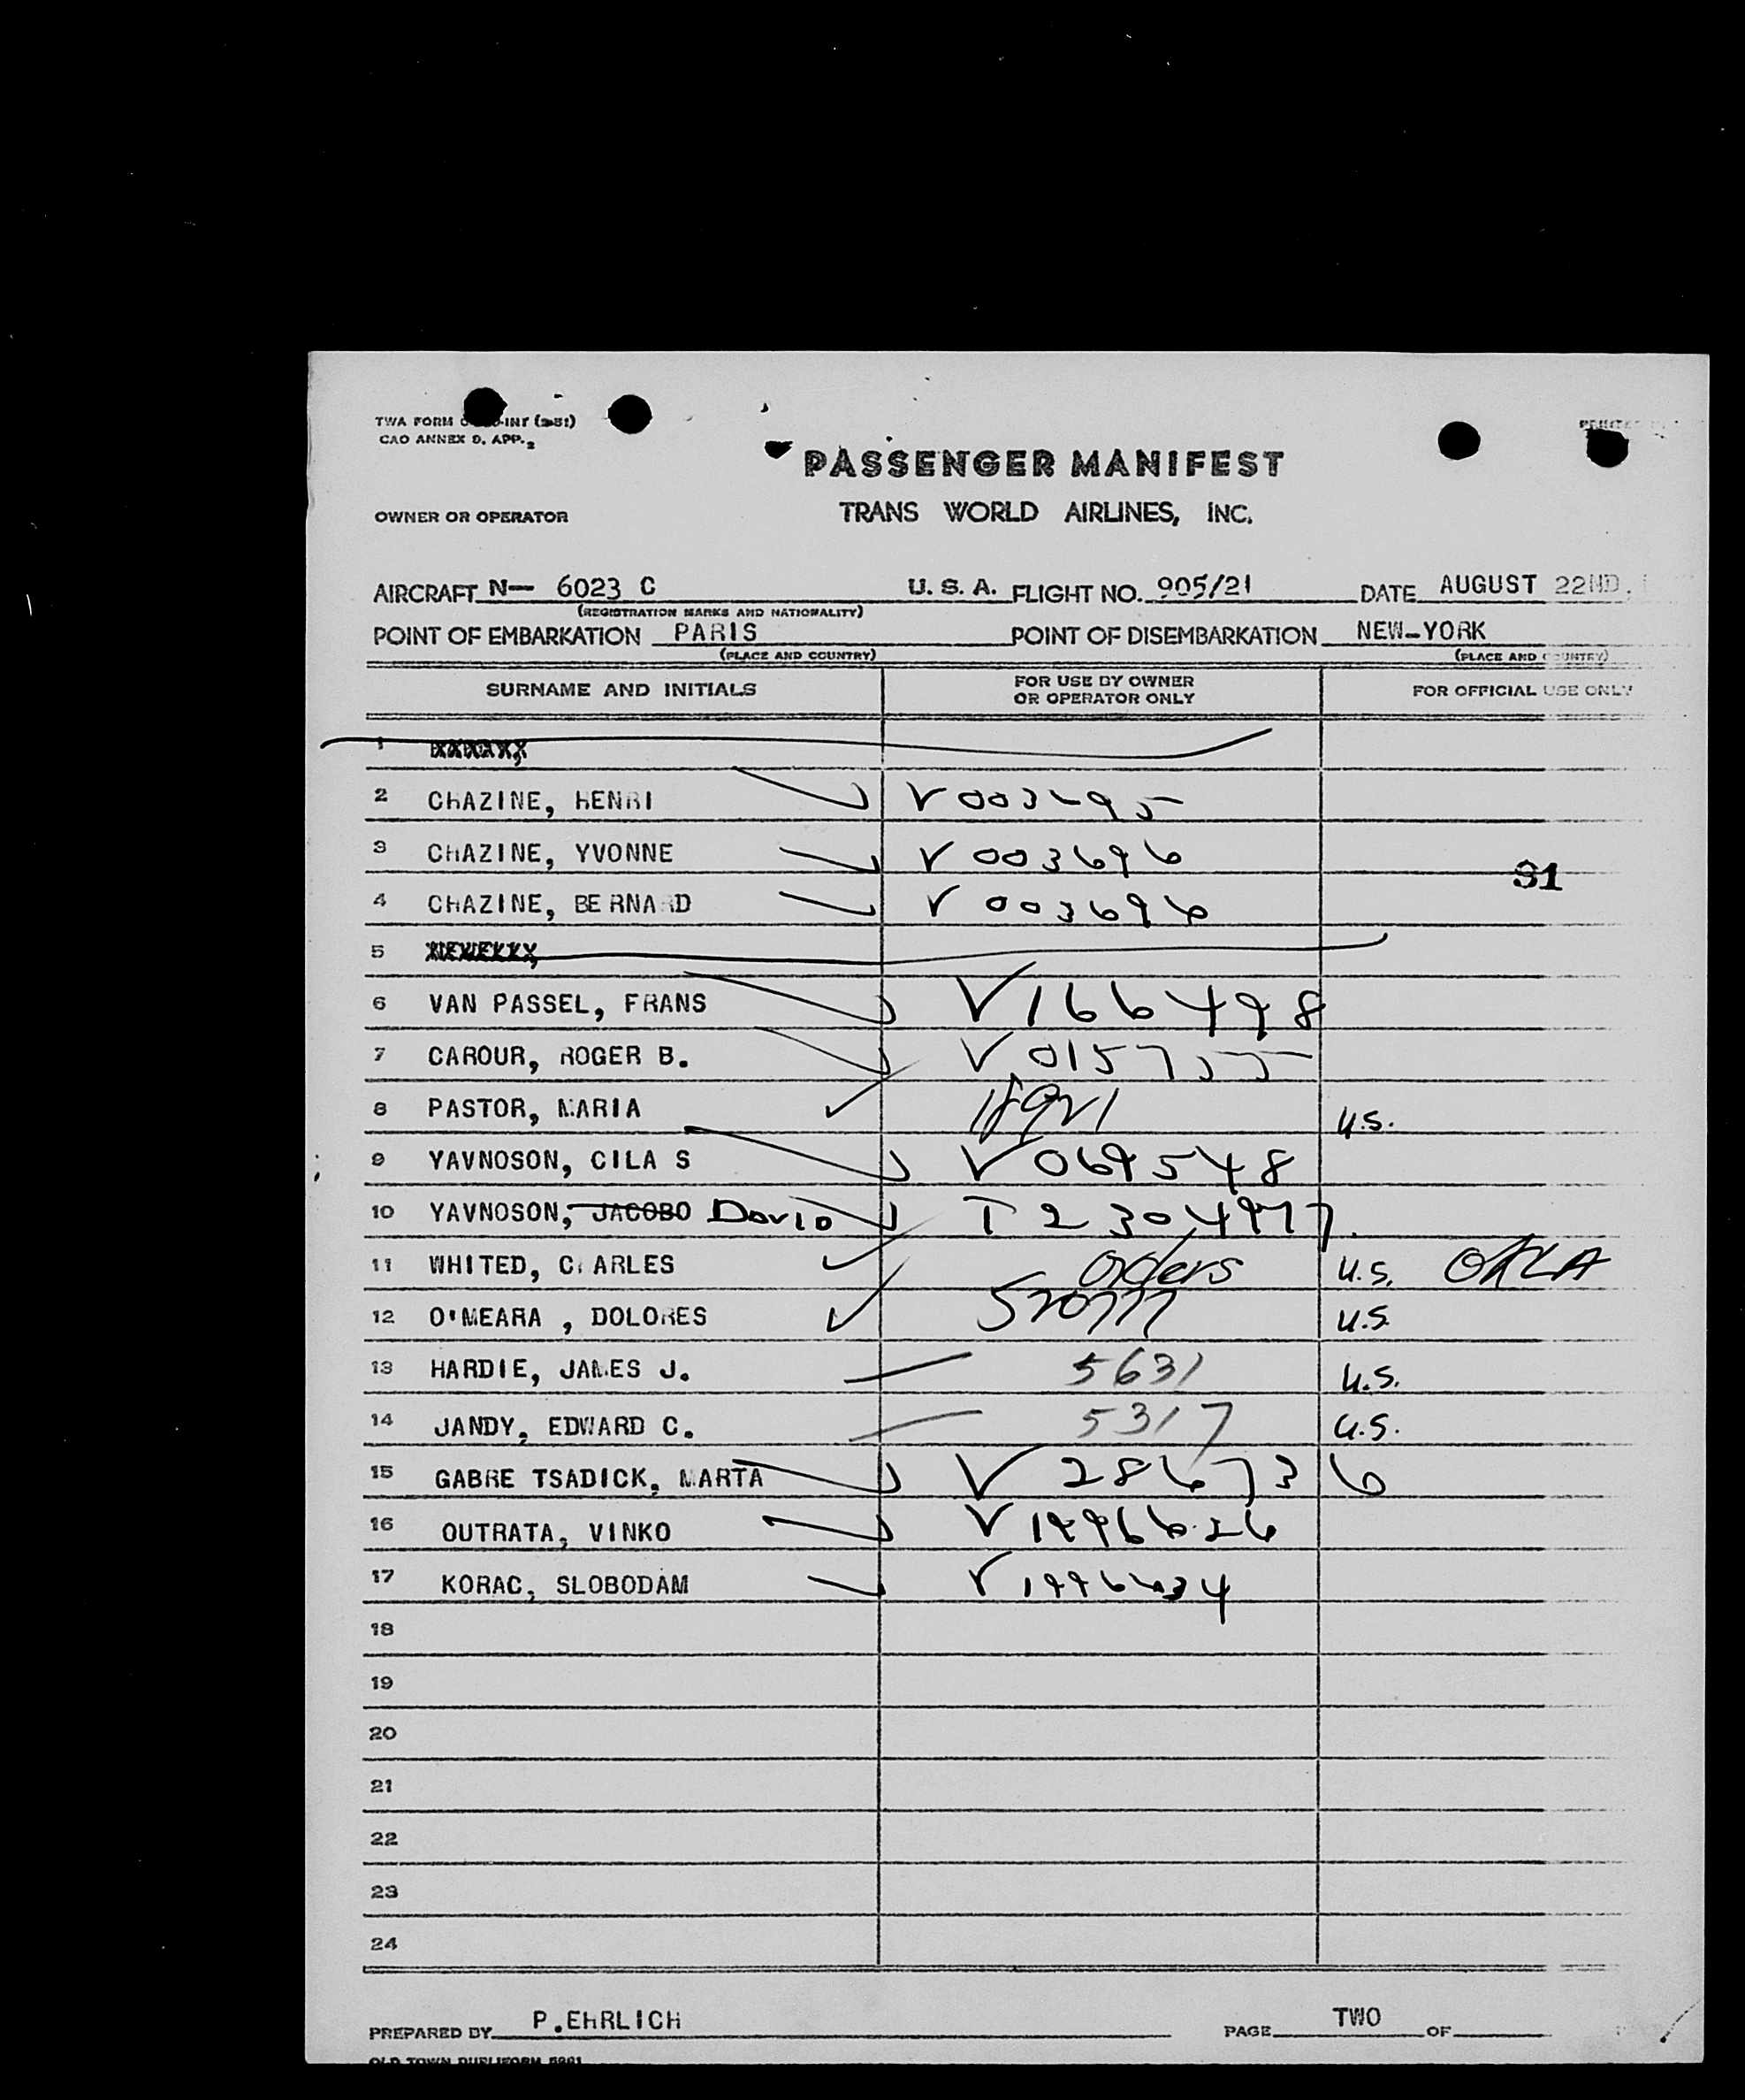 TWA FORM
CAO ANNEX 9, APP. 2
PASSENGER MANIFEST
OWNER OR OPERATOR TRANS WORLD AIRLINES, INC.
AIRCRAFT N— 6023 C U. S. A. FLIGHT NO. 905/21 DATE AUGUST 22ND.
(REGISTRATION MARKS AND NATIONALITY)
POINT OF EMBARKATION PARIS POINT OF DISEMBARKATION NEW-YORK
(PLACE AND COUNTRY) (PLACE AND COUNTRY)
SURNAME AND INITIALS FOR USE BY OWNER OR OPERATOR ONLY FOR OFFICIAL USE ONLY
1
2 CHAZINE, HENRI
3 CHAZINE, YVONNE V 003696
31
4 CHAZINE, BERNARD V 003696
5
6 VAN PASSEL, FRANS V 166498
7 CAROUR, ROGER B.
8 PASTOR, MARIA U.S.
9 YAVNOSON, CILA S V 069548
10 YAVNOSON, JACOBO David T 2304977
11 WHITED, CHARLES orders U.S. OKLA
12 O'MEARA , DOLORES U.S.
13 HARDIE, JAMES J. 5631 U.S.
14 JANDY, EDWARD C. 5317 U.S.
15 GABRE TSADICK, MARTA V 286736
16 OUTRATA, VINKO V 1996626
17 KORAC, SLOBODAM V 1996634
18
19
20
21
22
23
24
PREPARED BY P.EHRLICH PAGE TWO OF
OLD TOWN DUPLIFORM